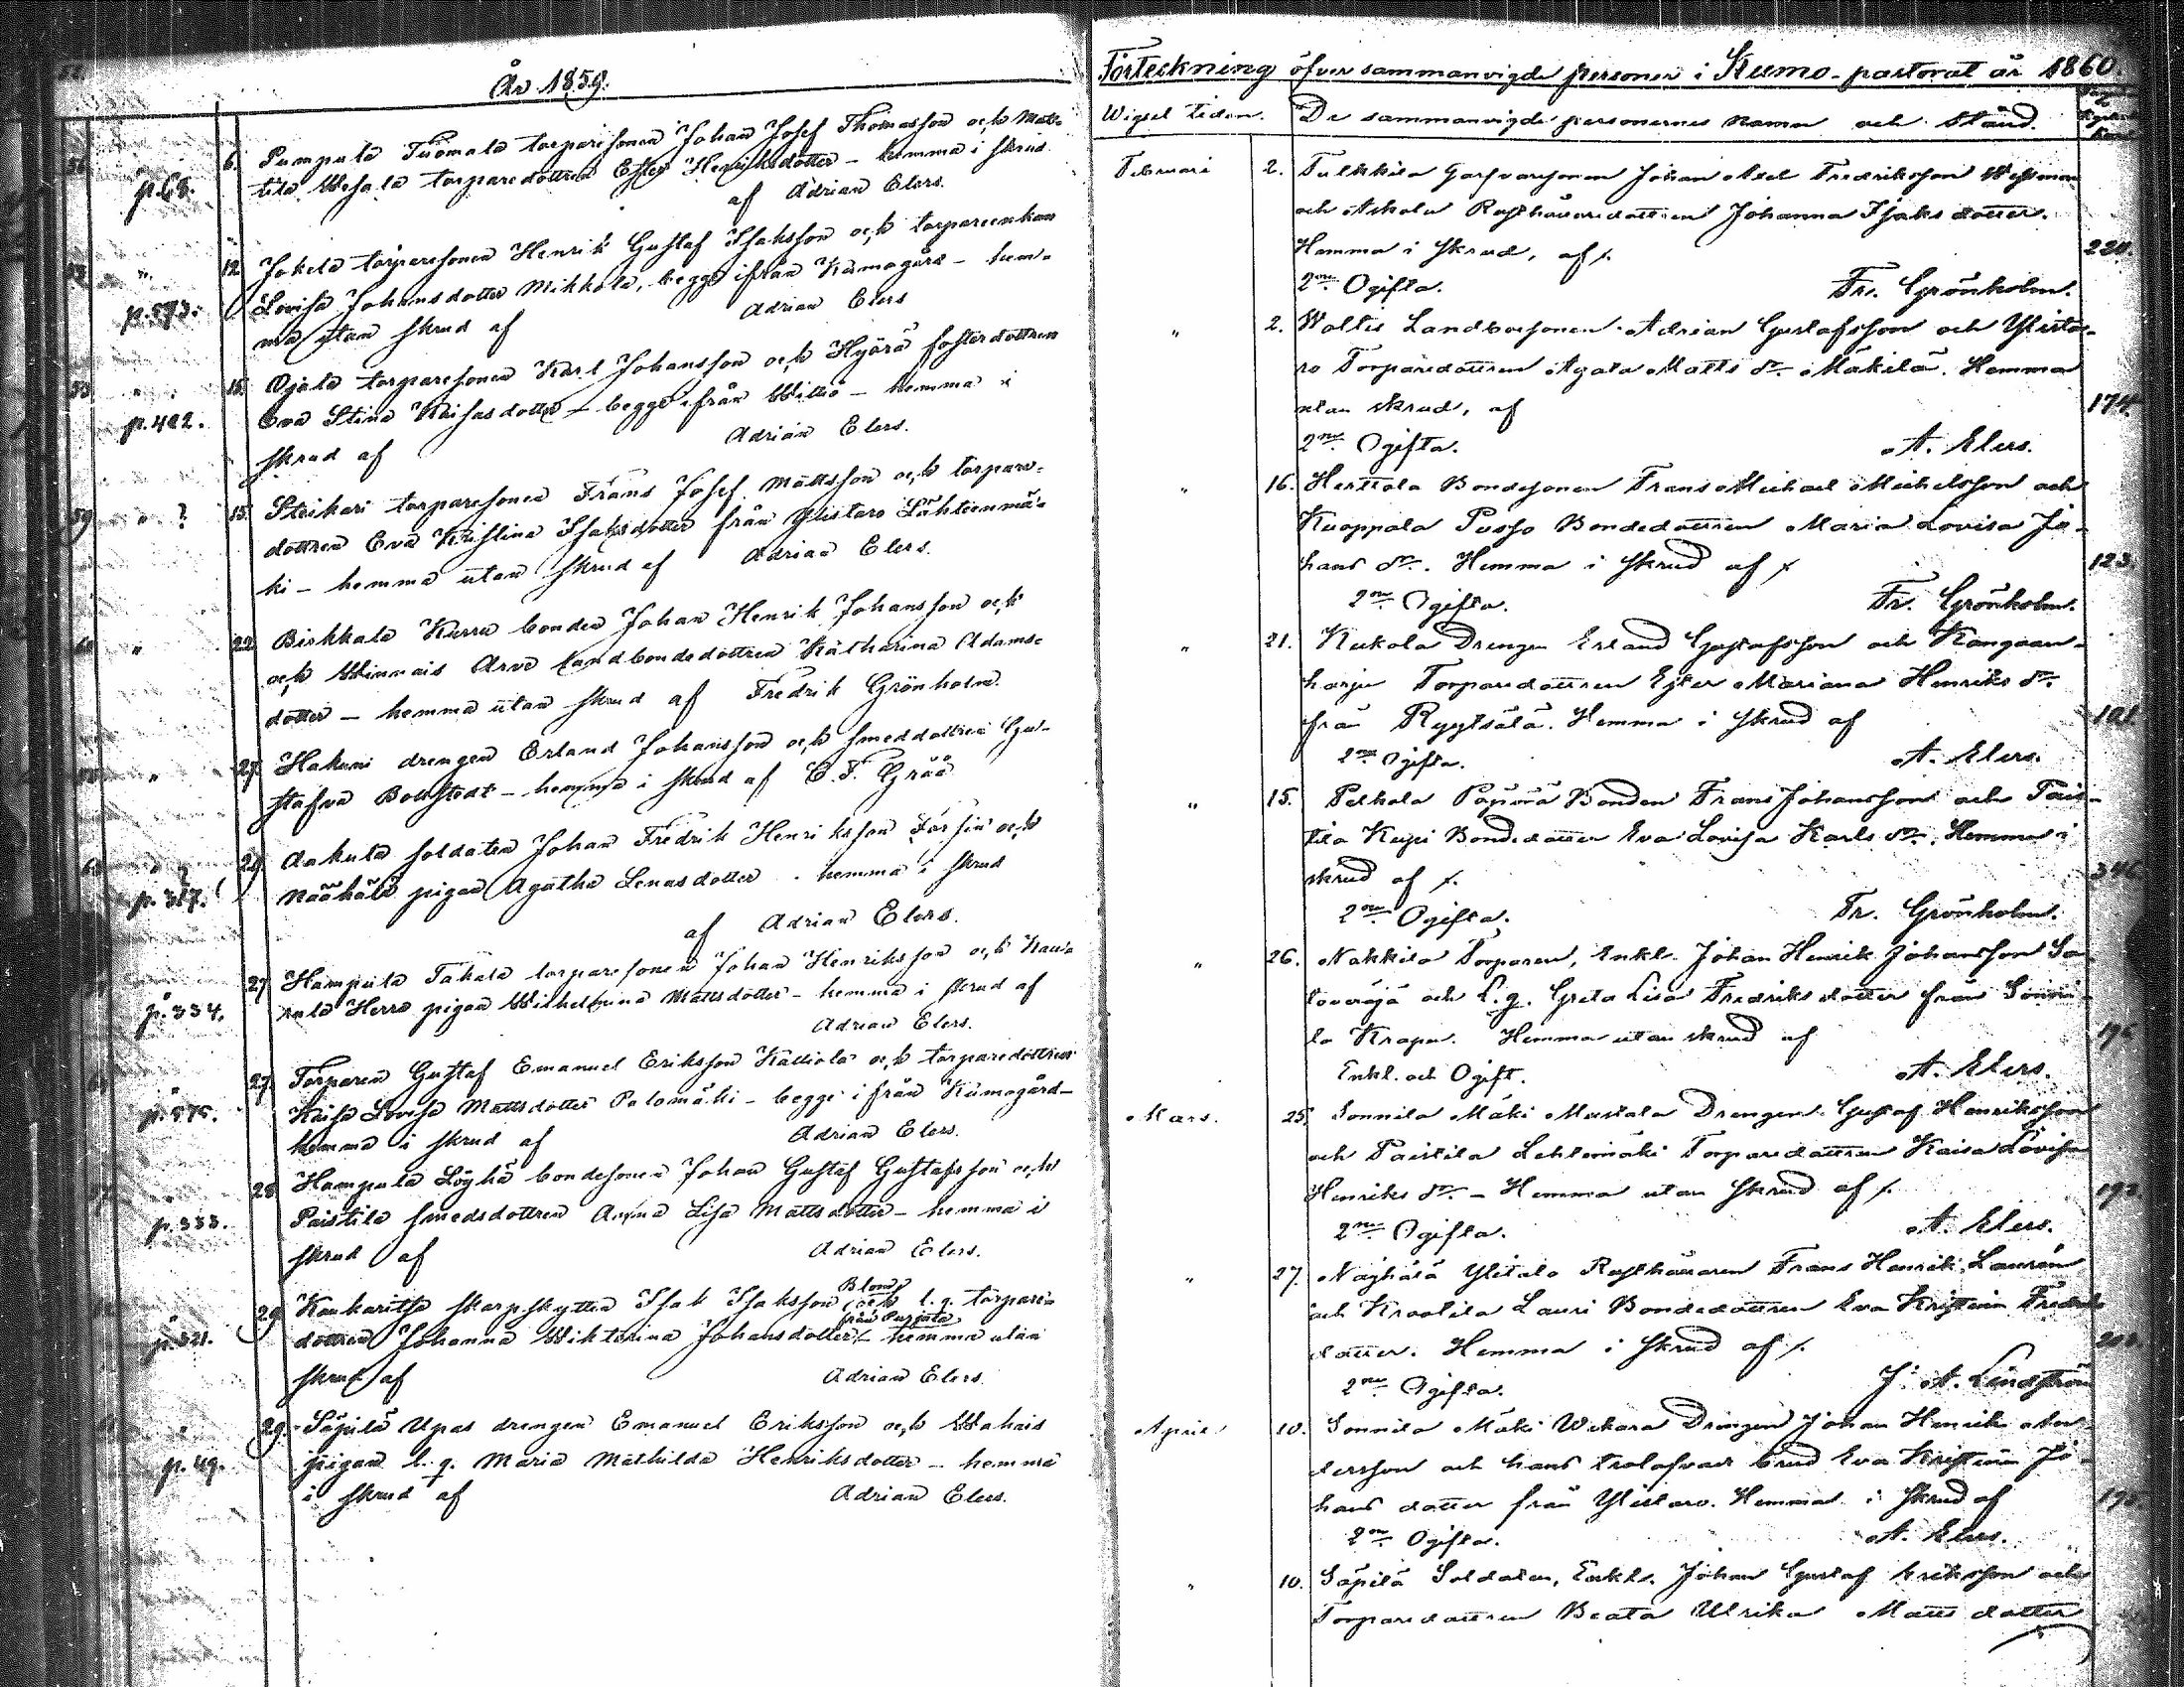 År 1859.
p. 68.
6. Pumpula Tuomala torparesonen Johan Josef Thomasson och Matti-
tila torparedottren Ester Henriksdotter – hemma i skrud
af Adrian Elers.
12. Jokela torparesonen Henrik Gustaf Isaksson och torpareenkan
p. 573.
Lovisa Johansdotter Mikkola, begge ifrån Kumogård – hem-
ma utan skrud af Adrian Elers
15. Ojala torparesonen Karl Johansson och Hyörä fosterdottren
p. 402.
Eva Stina Kaisasdotter – begge ifrån Wittio – hemma i
skrud af Adrian Elers.
59 " ? 15. Steikari torparesonen Frans Josef Mattsson och torpare-
dottren Eva Kristina Isaksdotter från Ylistaro Lähteenmä-
ki – hemma utan skrud af Adrian Elers.
" 22. Birkkala Kurra bonden Johan Henrik Johansson och
och Winnais Arva landbondedottren Katharina Adams-
dotter – hemma utan skrud af Fredrik Grönholm.
" 27. Hakuni drengen Erland Johansson och smeddottren Gu-
stafva Bollstedt – hemma i skrud af C. F. Grää
26. Aakula soldaten Johan Fredrik Henriksson Forsin och
p. 317.
Näähälä pigan Agatha Lenasdotter - hemma i skrud
af Adrian Elers.
27. Hampula Takala torparesonen Johan Henriksson och Kau-
p. 334.
Herro pigan Wilhelmina Mattsdotter – hemma i skrud af
Adrian Elers.
27. Torparen Gustaf Emanuel Eriksson Kalliola och torparedottren
p. 575.
Kaisa Lovisa Mattsdotter Palomäki – begge ifrån Kumogård –
hemma i skrud af Adrian Elers.
28. Hampula Löyhä bondesonen Johan Gustaf Gustafsson och
p. 333.
Paistila smedsdottren Anna Lisa Mattsdotter – hemma i
skrud af Adrian Elers.
29. Kaukaritsa skarpskytten Isak Isaksson Blom och l. q. torpare-
p. 321.
dottren Johanna Wiktorina Johansdotter från Purjala – hemma utan
skrud af Adrian Elers.
29. Säpilä Upas drengen Emanuel Eriksson och Wahais
p. 49.
pigan l. q. Maria Mathilda Henriksdotter – hemma
i skrud af Adrian Elers.
Förteckning öfver sammanvigda personer i Kumo-pastorat år 1860.
Wigsel tiden. De sammanvigde personernes namn och stånd.
Februari 2. Tulkkila Garfvarsonen Johan Axel Fredriksson
och Askola Rusthållaredottren Johanna Isaksdotter.
Hemma i skrud, af /. 220.
2ne Ogifta. Fr. Grönholm.
" 2. Waltis Landbosonen Adrian Gustafsson och Ylista-
ro Torparedottren Agata Matts dr. Mäkilä. Hemma
utan skrud, af 174.
2ne Ogifta. A. Elers.
" 16. Herttola Bondesonen Frans Michael Michelsson och
Kuoppala Pusso Bondedottren Maria Lovisa Jo-
hans dr. Hemma i skrud af /. 123.
2ne Ogifta. Fr. Grönholm.
" 21. Kukola Drengen Erland Gustafsson och Kangaan-
harju Torparedottren Ester Mariana Henriks dr.
frå Ryytsälä. Hemma i skrud af 101.
2ne Ogifta. A. Elers.
" 15. Pelhola Pappina Bonden Frans Johansson och Pais-
tila Kupi Bondedotter Eva Lovisa Karls dr. Hemma i
skrud af /. 346.
2ne Ogifta. Fr. Grönholm.
" 26. Nakkila Torparen, Enkl. Johan Henrik Johansson Sa-
loveräjä och L. q. Greta Lisa Fredriksdotter från Sonni-
la Krapu. Hemma utan skrud af
Enkl. och Ogift. A. Elers.
Mars. 25. Sonnila Mäki Mustala Drengen Gustaf Henriksson
och Paistila Lehtomäki Torparedottren Kaisa Lovisa
Henriks dr. – Hemma utan skrud af /.
2ne Ogifta. A. Elers.
" 27. Näyhälä Ylitalo Rusthållaren Frans Henrik Laurén
och Kraatila Lauri Bondedottren Eva Kristina Fredriks
dotter. Hemma i skrud af /.
2ne Ogifta. J. A. Lindström
April 10. Sonnila Mäki Wekara Drengen Johan Henrik An-
dersson och hans trolofvade brud Eva Kristina Jo-
hans dotter från Ylistaro. Hemma i skrud af
2ne Ogifta. A. Elers.
" 10. Säpilä Soldaten, Enkl. Johan Gustaf Eriksson och
Torparedottren Beata Ulrika Matts dotter